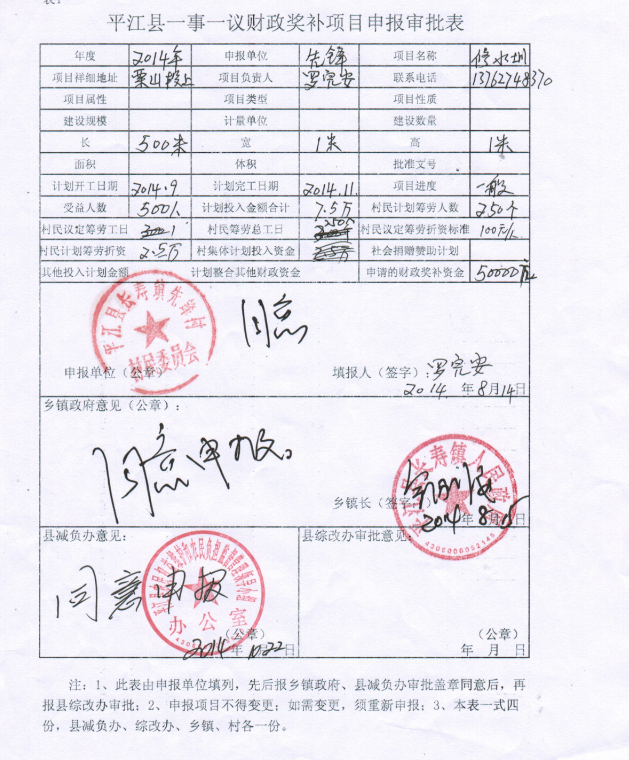 表:
平江县一事一议财政奖补项目申报审批表
年度 2014年 申报单位 先锋 项目名称 修水圳
项目祥细地址 栗山段上 项目负责人 罗完安 联系电话 13762748370
项目属性 项目类型 项目性质
建设规模 计量单位 建设数量
长 500米 宽 1米 高 1米
面积 体积 批准文号
计划开工日期 2014.9. 计划完工日期 2014.11. 项目进度 一般
受益人数 500人 计划投入金额合计 7.5万 村民计划筹劳人数 250个
村民议定筹劳工日 1 村民筹劳总工日 250个 村民议定筹劳折资标准 100元/人
村民计划筹劳折资 2.5万 村集体计划投入资金 社会捐赠赞助计划
其他投入计划金额 计划整合其他财政资金 申请的财政奖补资金 50000元
平江县长寿镇先锋村
村民委员会
同意
申报单位（公章） 填报人（签字）：罗完安
2014. 年8月14日
乡镇政府意见（公章）：
同意申报。
平江县长寿镇人民政府
乡镇长（签字）
2014年8月15日
4306006052145
县减负办意见： 县综改办审批意见：
同意申报
办公室
（公章） （公章）
2014年10.22日 年 月 日
注：1、此表由申报单位填列，先后报乡镇政府、县减负办审批盖章同意后，再
报县综改办审批；2、申报项目不得变更；如需变更，须重新申报；3、本表一式四
份，县减负办、综改办、乡镇、村各一份。